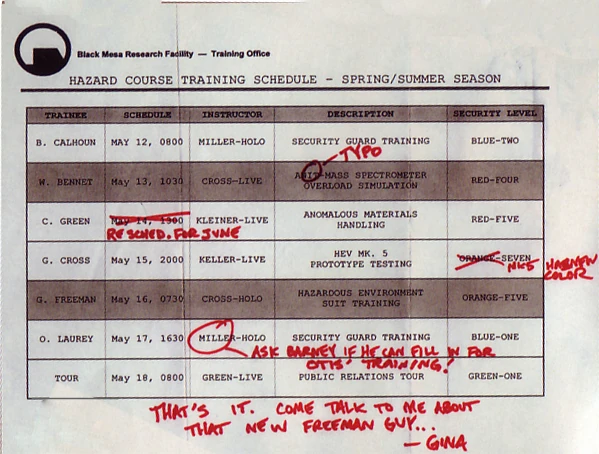 Black Mesa Research Facility — Training Office
HAZARD COURSE TRAINING SCHEDULE - SPRING/SUMMER SEASON
TRAINEE SCHEDULE INSTRUCTOR DESCRIPTION SECURITY LEVEL
B. CALHOUN MAY 12, 0800 MILLER-HOLO SECURITY GUARD TRAINING BLUE-TWO
TYPO
W. BENNET May 13, 1030 CROSS-LIVE -MASS SPECTROMETER RED-FOUR
OVERLOAD SIMULATION
C. GREEN May 14, 1300 KLEINER-LIVE ANOMALOUS MATERIALS RED-FIVE
HANDLING
RESCHED. FOR JUNE
G. CROSS May 15, 2000 KELLER-LIVE HEV MK. 5 ORANGE-SEVEN
PROTOTYPE TESTING
MK5 HAS NEW
COLOR
G. FREEMAN May 16, 0730 CROSS-HOLO HAZARDOUS ENVIRONMENT ORANGE-FIVE
SUIT TRAINING
O. LAUREY May 17, 1630 MILLER-HOLO SECURITY GUARD TRAINING BLUE-ONE
ASK BARNEY IF HE CAN FILL IN FOR
OTIS' TRAINING!
TOUR May 18, 0800 GREEN-LIVE PUBLIC RELATIONS TOUR GREEN-ONE
THAT'S IT. COME TALK TO ME ABOUT
THAT NEW FREEMAN GUY...
— GINA